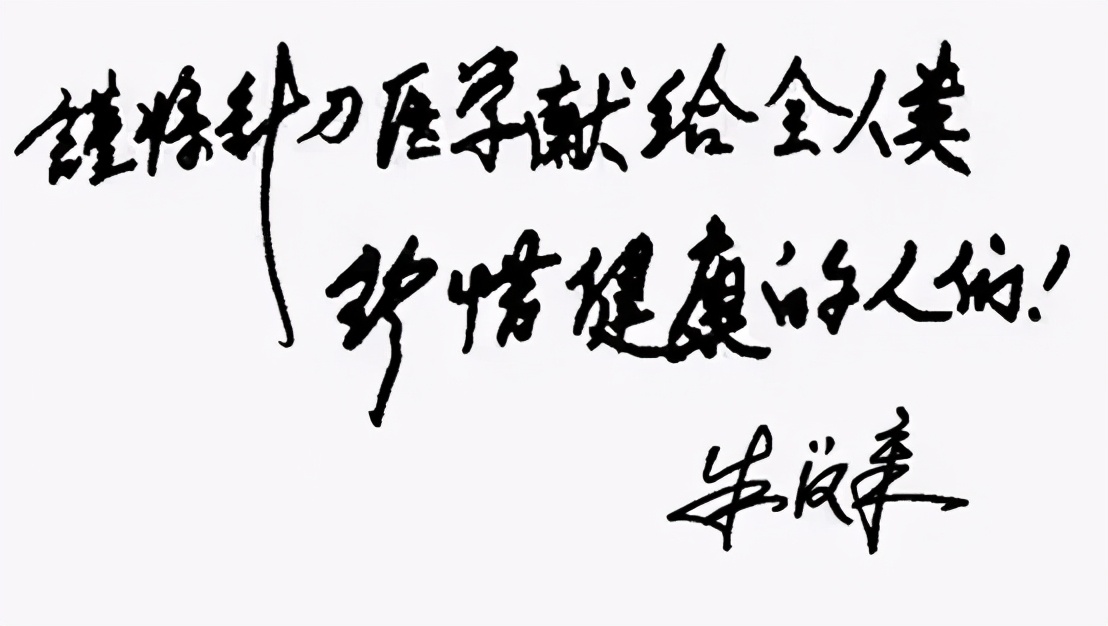 謹将針刀医学献给全人类
珍惜健康的人们！
朱汉章